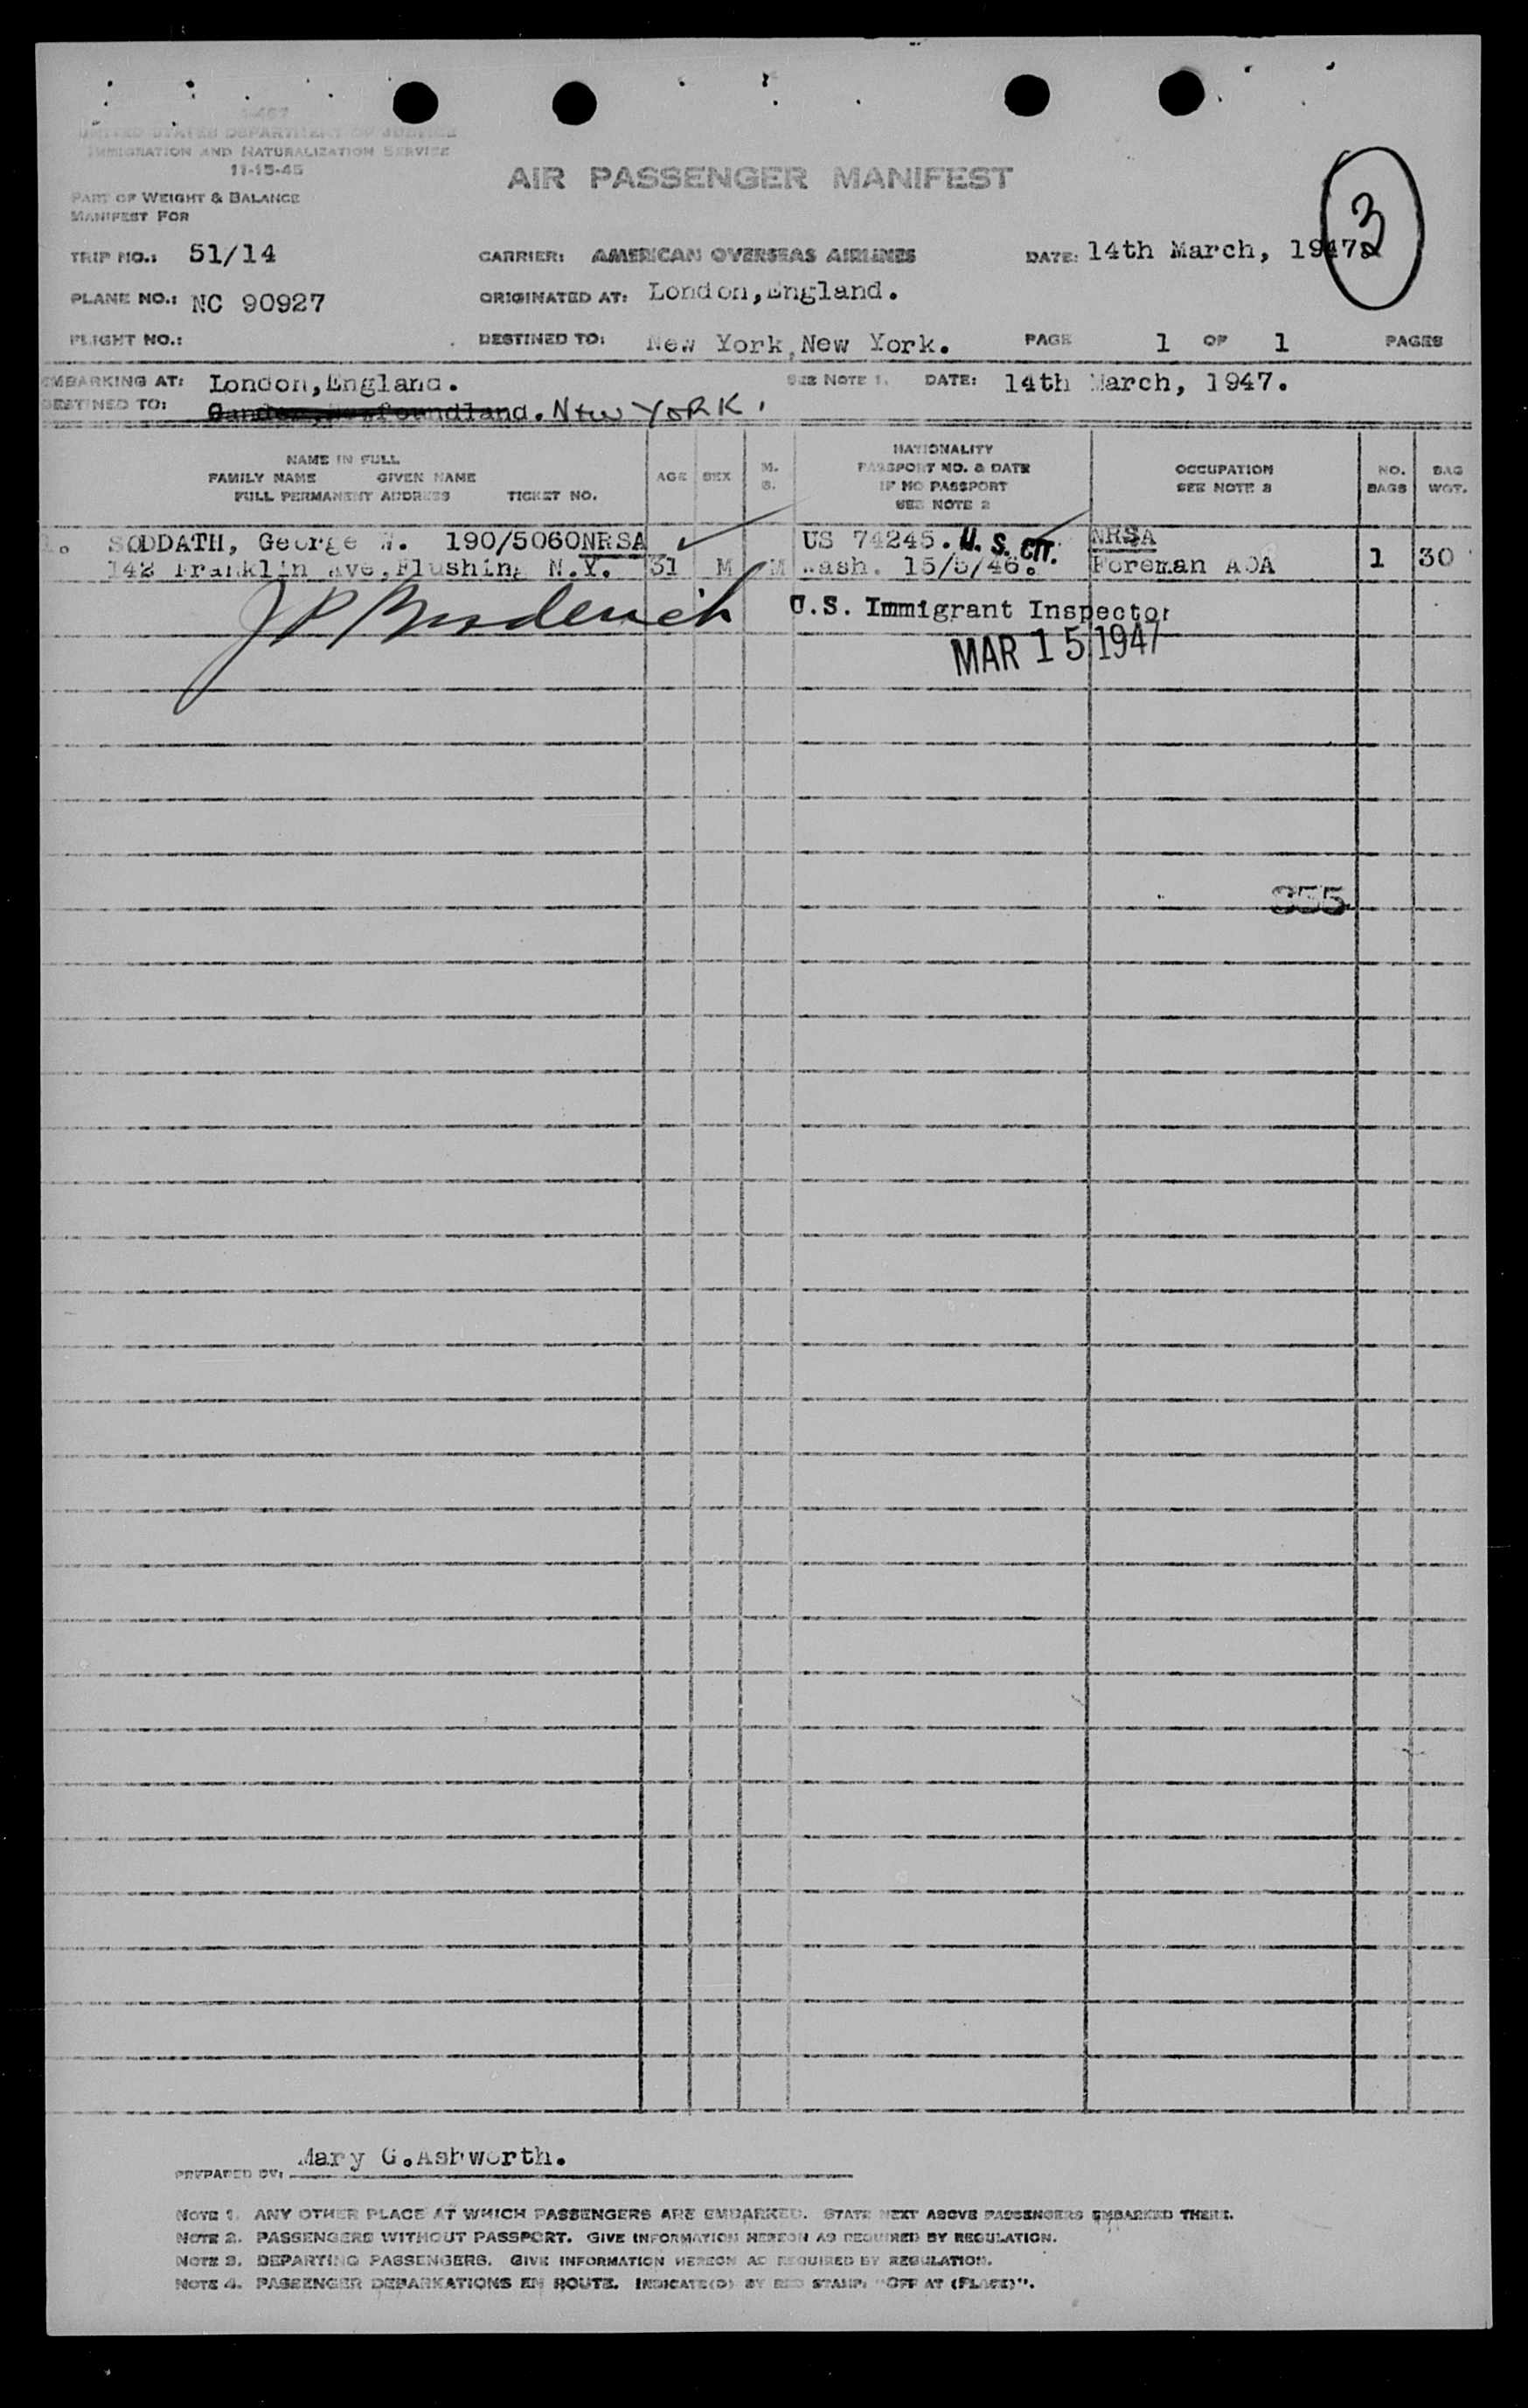 I-467
UNITED STATES DEPARTMENT OF JUSTICE
IMMIGRATION AND NATURALIZATION SERVICE
11-15-45
AIR PASSENGER MANIFEST
3
PART OF WEIGHT & BALANCE
MANIFEST FOR
TRIP NO.: 51/14 CARRIER: AMERICAN OVERSEAS AIRLINES DATE: 14th March, 1947
PLANE NO.: NC 90927 ORIGINATED AT: London,England.
FLIGHT NO.: DESTINED TO: New York,New York. PAGE 1 OF 1 PAGES
EMBARKING AT: London,England. SEE NOTE 1. DATE: 14th March, 1947.
DESTINED TO: Gander,Newfoundland. New YORK.
NAME IN FULL
FAMILY NAME GIVEN NAME
FULL PERMANENT ADDRESS TICKET NO.
AGE SEX M. S.
NATIONALITY
PASSPORT NO. & DATE
IF NO PASSPORT
SEE NOTE 2
OCCUPATION
SEE NOTE 3
NO. BAGS
BAG WGT.
1. SODDATH, George W. 190/5060NRSA US 74245. U.S. CIT. NRSA
142 Franklin Ave,Flushing N.Y. 31 M M Wash. 15/5/46. Foreman AOA 1 30
J P Broderick U.S. Immigrant Inspector
MAR 15 1947
355
PREPARED BY: Mary G.Ashworth.
NOTE 1. ANY OTHER PLACE AT WHICH PASSENGERS ARE EMBARKED. STATE NEXT ABOVE PASSENGERS EMBARKED THERE.
NOTE 2. PASSENGERS WITHOUT PASSPORT. GIVE INFORMATION HEREON AS REQUIRED BY REGULATION.
NOTE 3. DEPARTING PASSENGERS. GIVE INFORMATION HEREON AS REQUIRED BY REGULATION.
NOTE 4. PASSENGER DEBARKATIONS EN ROUTE. INDICATE(D) BY RED STAMP: "OFF AT (PLACE)".